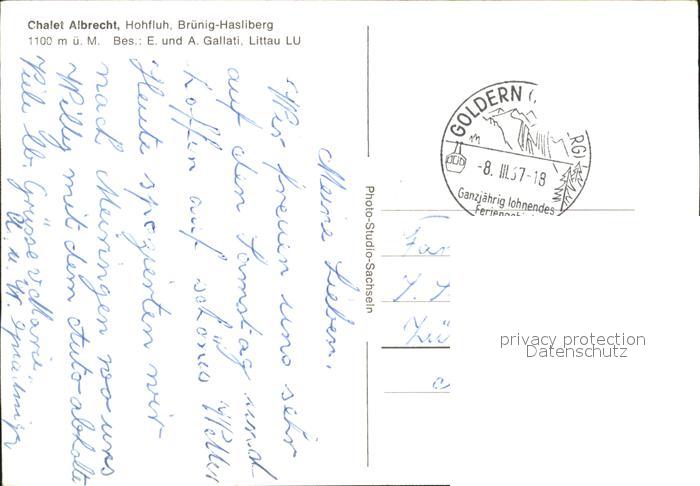 Chalet Albrecht, Hohfluh, Brünig-Hasliberg
1100 m ü. M. Bes.: E. und A. Gallati, Littau LU
Meine Lieben,
Wir freuen uns sehr
auf den Samstag und
hoffen auf schönes Wetter
Heute spazierten wir
nach Meiringen wo uns
Willy mit dem Auto abholte
Viele lb. Grüsse v. Marie
Photo-Studio-Sachseln
GOLDERN (
RG)
-8. III. 67-18
Ganzjährig lohnendes
Feriengebi
Fam
Zür
privacy protection
Datenschutz